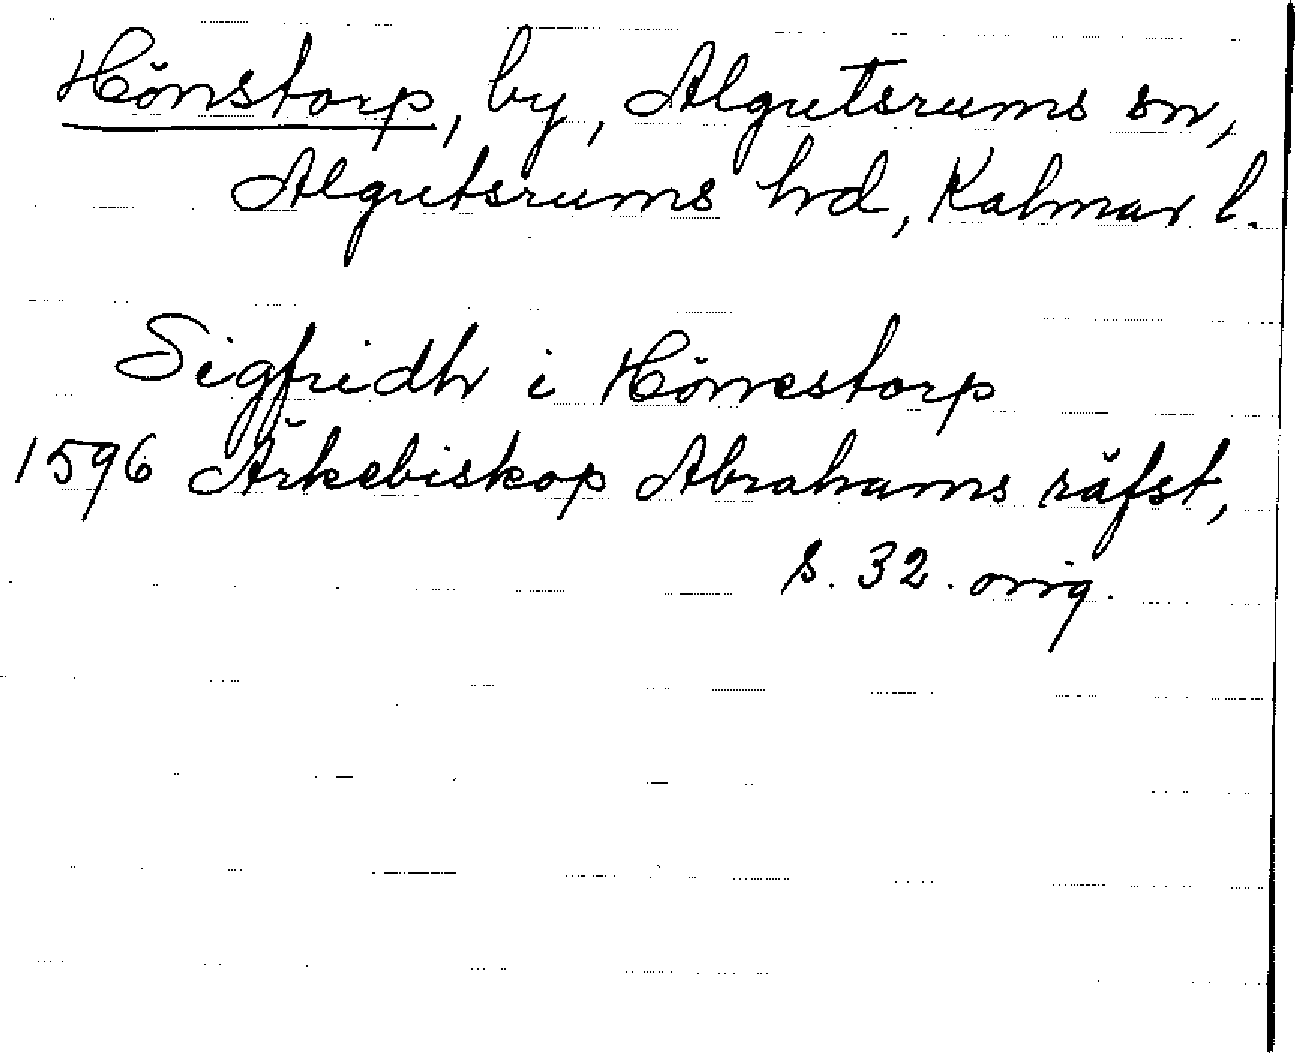 Hönstorp, by, Algutsrums sn,
Algutsrums hd, Kalmar l.
Sigfridh i Hönestorp
1596 Ärkebiskop Abrahams räfst,
s. 32. orig.